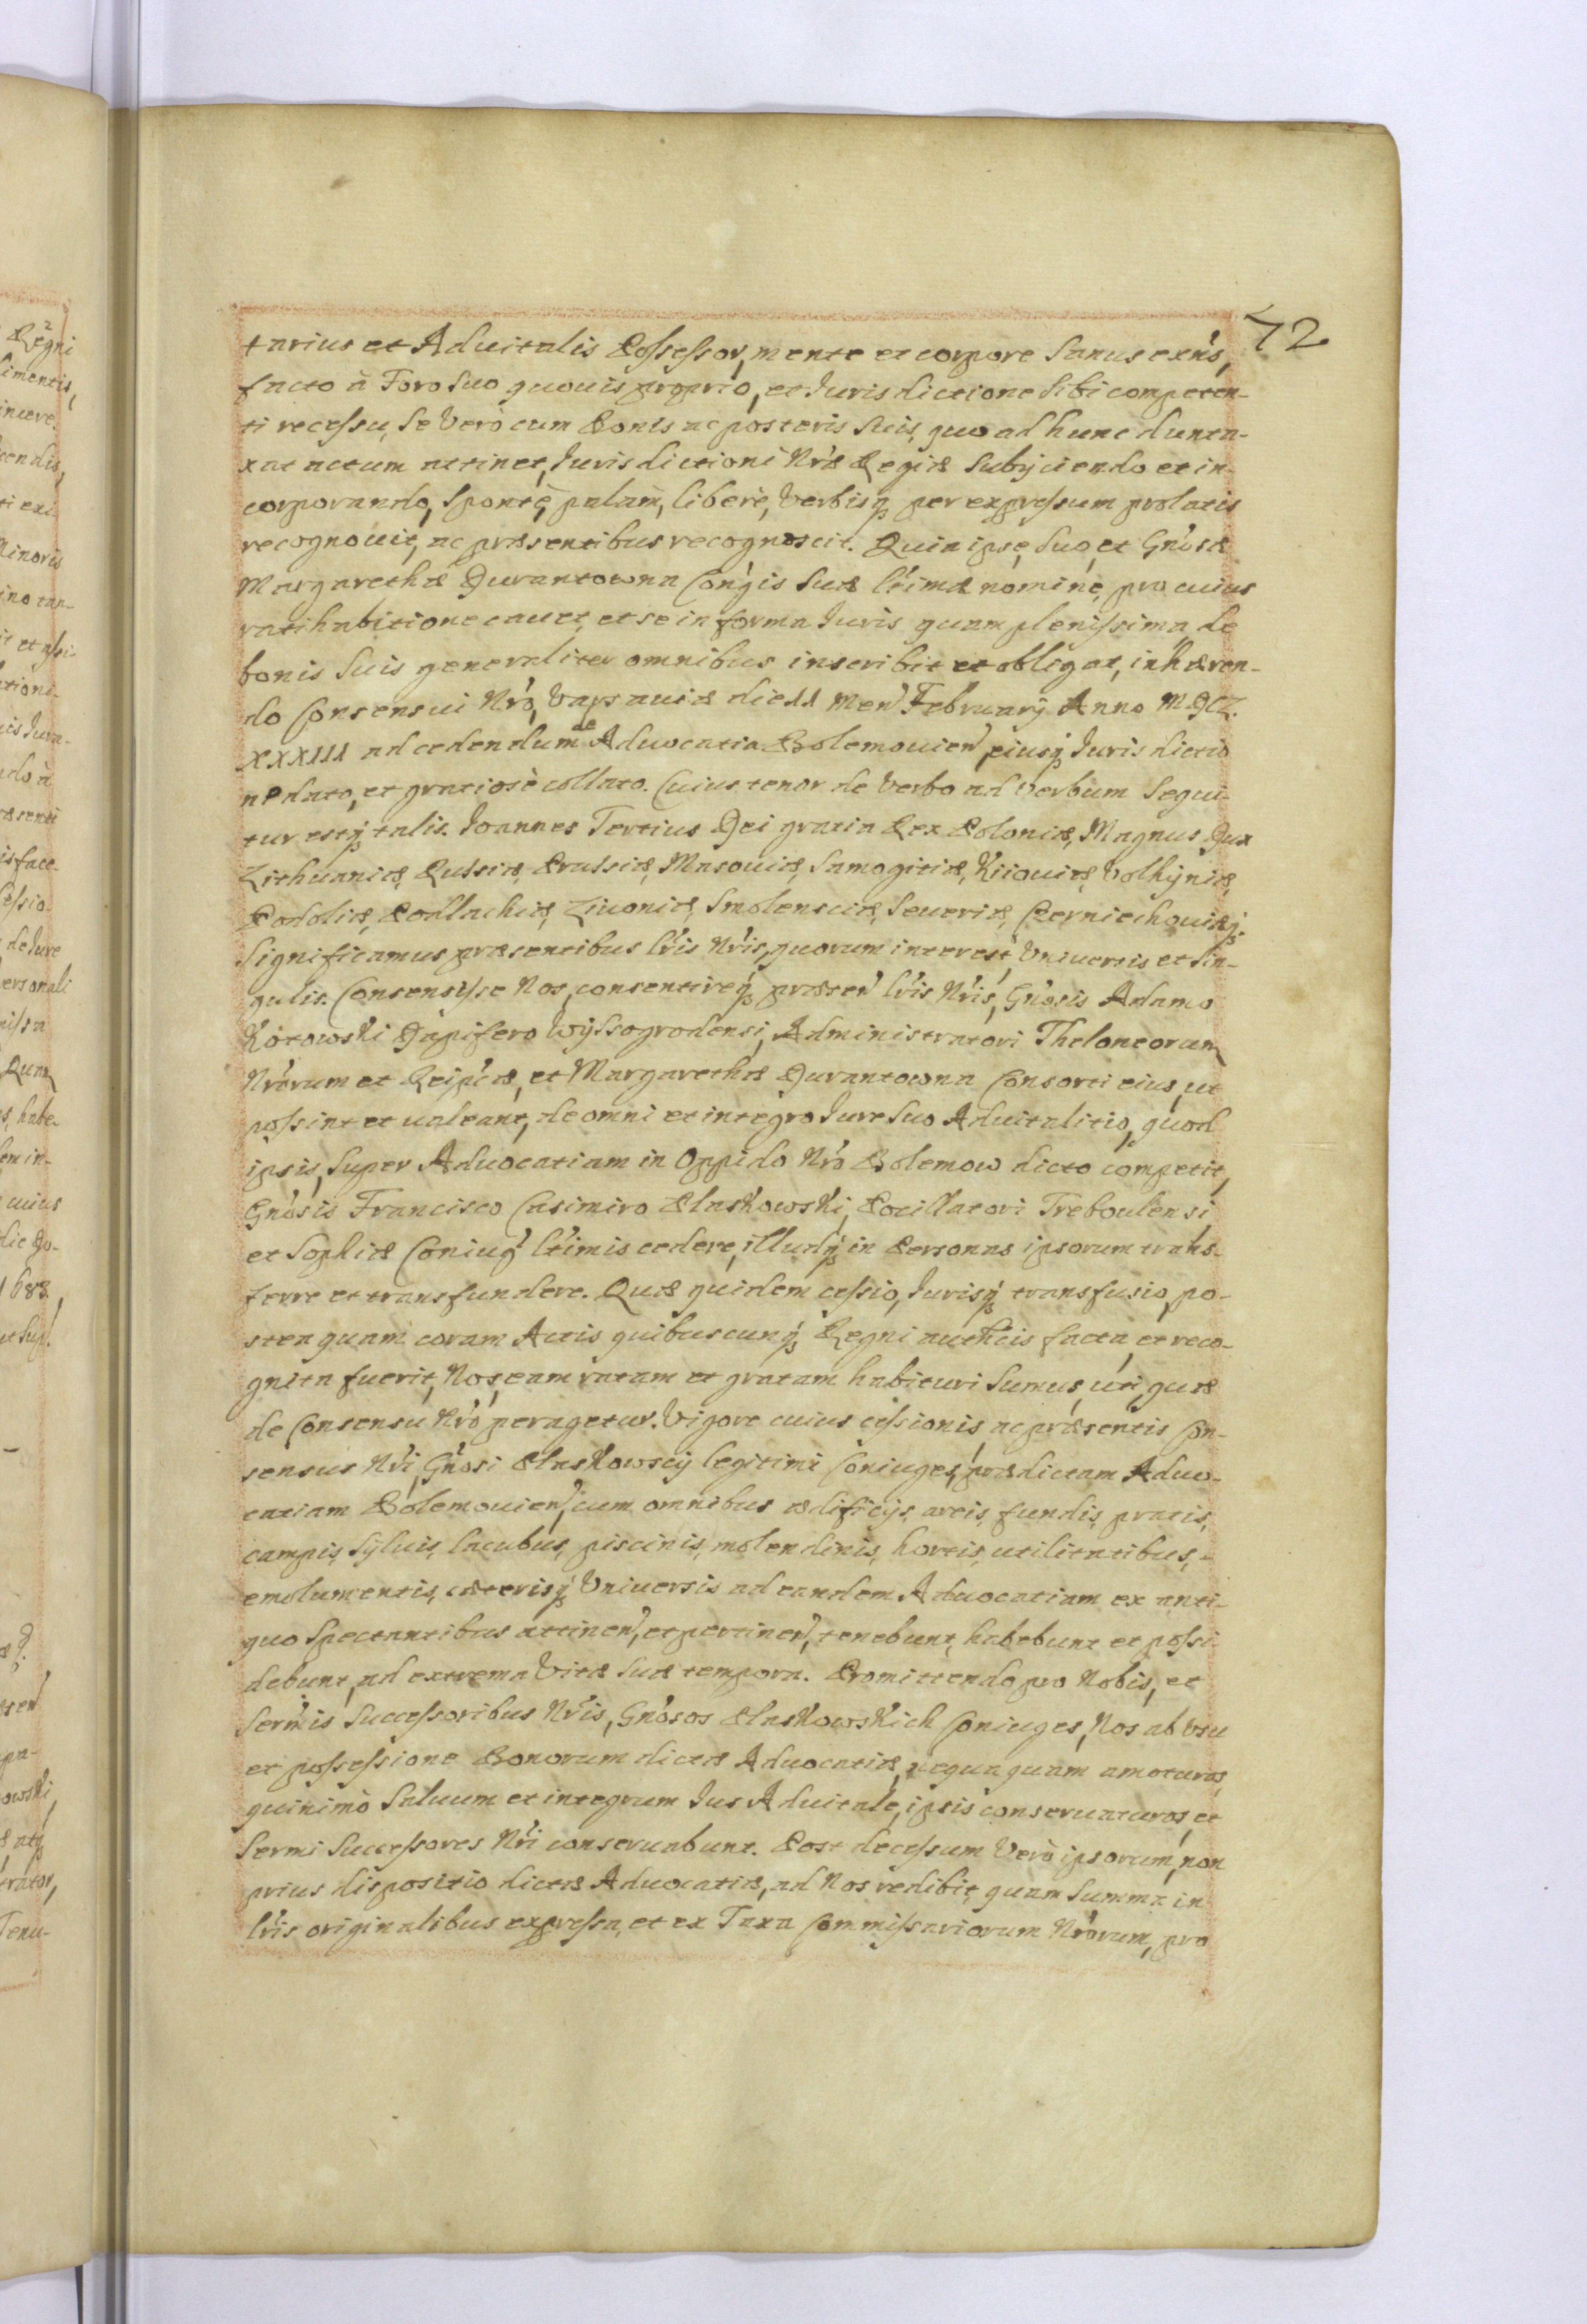 72
tarius et Aduitalis Possessor, mente et corpore Sanus exñs,
facto à Foro Suo quouis proprio, et Jurisdictione Sibi competen-
ti recessu, Se Verò cum Bonis ac posteris Suis, quo ad hunc dunta-
xat actum attinet, Jurisdictioni Nræ Regiæ Subijciendo et in-
corporando, Spontè, palàm, liberè, Verbisq; per expressum prolatis
recognouit, ac præsentibus recognoscit. Quia ipse, Suo, et Gnosæ
Margarethæ Durantowna Congis Suæ ltimæ nomine, pro cuius
ratihabitione cauet, et se in forma Juris quam plenissima de
bonis Suis generaliter omnibus inscribit et obligat, inhæren-
do Consensui Nro, Varsauiæ die 11 Men Februarij Anno MDCL
XXXIII ad cedendum de Aduocatia Bolemouien, eiusq; Jurisdictio
ne dato, et gratiosè collato. Cuius tenor de Verbo ad Verbum Sequi-
tur estq; talis. Joannes Tertius Dei gratia Rex Poloniæ, Magnus Dux
Lithuaniæ, Russiæ, Prussiæ, Masouiæ, Samogitiæ, Kiiouiæ, Volhyniæ,
Podoliæ, Podlachiæ, Liuoniæ, Smolensciæ, Seueriæ, Czerniechouiæq;.
Significamus præsentibus lris Nris, quorum interest, Vniuersis et Sin-
gulis. Consensisse Nos, consentireq; præsen lris Nris, Gnosis Adamo
Kotowski Dapifero Wyssogrodensi, Administratori Theloneorum
Nrorum et Reipcæ, et Margarethæ Durantowna Consorti eius, ut
possint et ualeant, de omni et integro Jure Suo Aduitalitio, quod
ipsis, Super Aduocatiam in Oppido Nro Bolemow dicto competit,
Gnosis Francisco Casimiro Płaskowski, Pocillatori Treboulensi,
et Sophiæ Coniug ltimis cedere, illudq; in Personas ipsorum trans-
ferre et transfundere. Quæ quidem cessio, Jurisq; transfusio, po-
stea quam coram Actis quibuscunq; Regni authcis facta, et reco-
gnita fuerit, Nos, eam ratam et gratam habituri Sumus, uti, quæ
de Consensu Nro peragetur. Vigore cuius cessionis, ac præsentis Con-
sensus Nri, Gnosi Płaskowscy legitimi Coniuges, prædictam Aduo-
catiam Bolemouien, cum omnibus ædificijs, areis, fundis, pratis,
campis, Syluis, lacubus, piscinis, molendinis, hortis, utilitatibus,
emolumentis, cæterisq; Vniuersis ad eandem Aduocatiam ex anti-
quo Spectantibus attinen, et pertinen, tenebunt, habebunt et possi
debunt, ad extrema Vitæ Suæ tempora. Promittendo pro Nobis, et
Sermis Successoribus Nris, Gnosos Płaskowskich Coniuges, Nos ab Vsu
et possessione Bonorum dictæ Aduocatiæ, nequaquam amoturos,
quinimò Saluum et integrum Jus Aduitale, ipsis conseruaturos, et
Sermi Successores Nri conseruabunt. Post decessum Verò ipsorum, non
prius dispositio dictæ Aduocatiæ, ad Nos redibit, quam Summa in
lris originalibus expressa, et ex Taxa Commissariorum Nrorum, pro